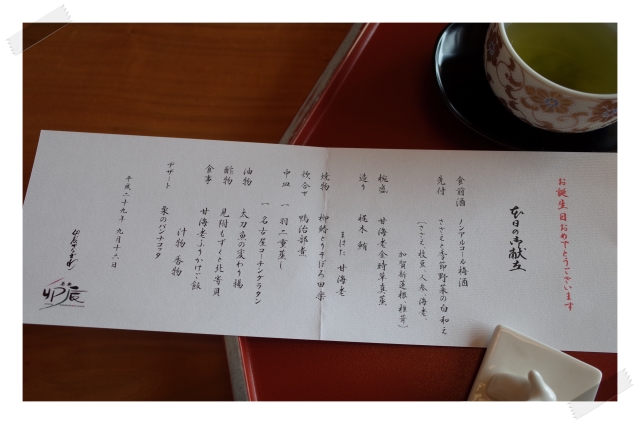 お誕生日おめでとうございます
本日の御献立
食前酒 ノンアルコール梅酒
先付 さざえと季節野菜の白和え
(さざえ、枝豆、人参、海老、
加賀新蓮根、椎茸)
椀盛 甘海老金時草真蒸
造り 梶木鮪
または 甘海老
焼物 柳鰆とりそぼろ田楽
炊合せ 鴨治部煮
中皿 一 羽二重蒸し
一 名古屋コーチングラタン
油物 太刀魚の変わり揚
酢物 見附もずくと北寄貝
食事 甘海老ふりかけご飯
汁物 香物
デザート 栗のパンナコッタ
平成二十九年 九月十六日
卯辰